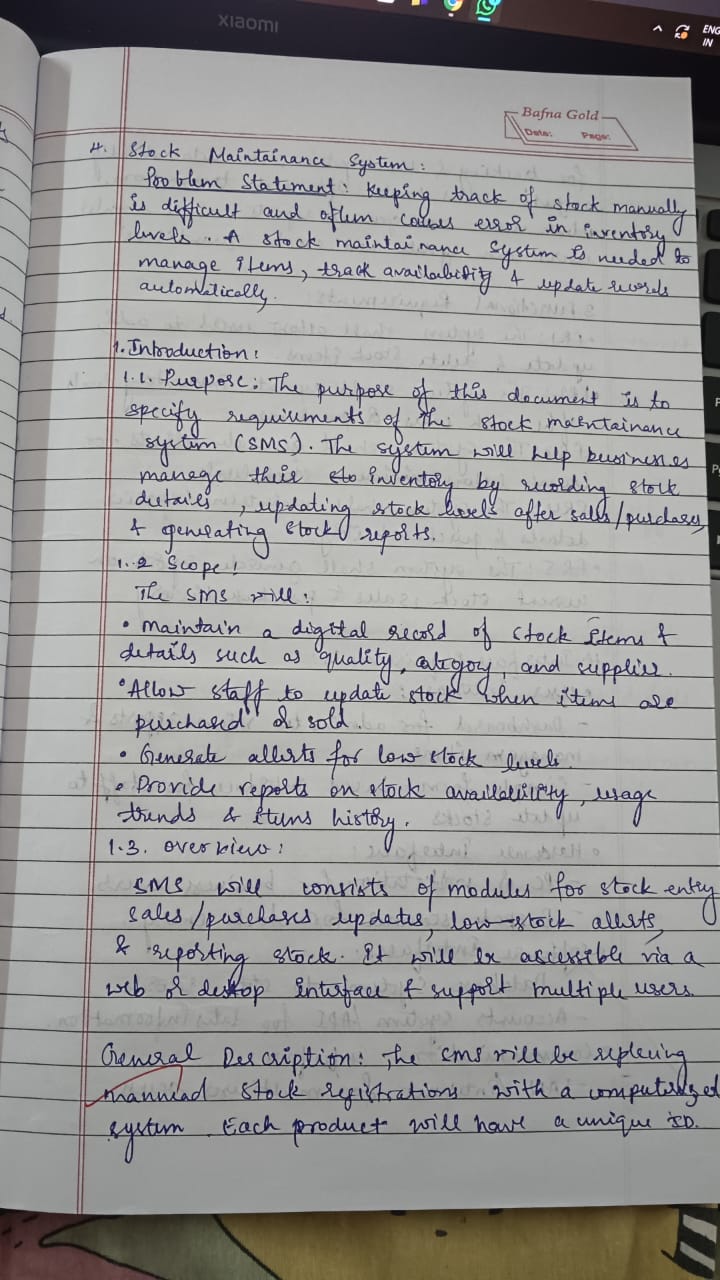 xiaomi
ENG
IN
Bafna Gold
Date: Page:
4. Stock Maintainance System:
Problem Statement: Keeping track of stock manually
is difficult and often causes error in inventory
levels. A stock maintainance system is needed to
manage items, track availability & update records
automatically.
1. Introduction:
1.1. Purpose: The purpose of this document is to
specify requirements of the stock maintainance
system (SMS). The system will help businesses
manage their inventory by recording stock
details, updating stock levels after sales/purchases
& generating stock reports.
1.2 Scope:
The SMS will:
• maintain a digital record of stock items &
details such as quality, category, and supplier.
• Allow staff to update stock when items are
purchased or sold.
• Generate allerts for low stock levels.
• Provide reports on stock availability, usage
trends & items history.
1.3. overview:
SMS will consists of modules for stock entry
sales/purchases updates, low-stock allerts,
& reporting stock. It will be accessible via a
web or desktop interface & support multiple users.
General Description: The SMS will be replacing
stock registrations with a computerized
system. Each product will have a unique ID.